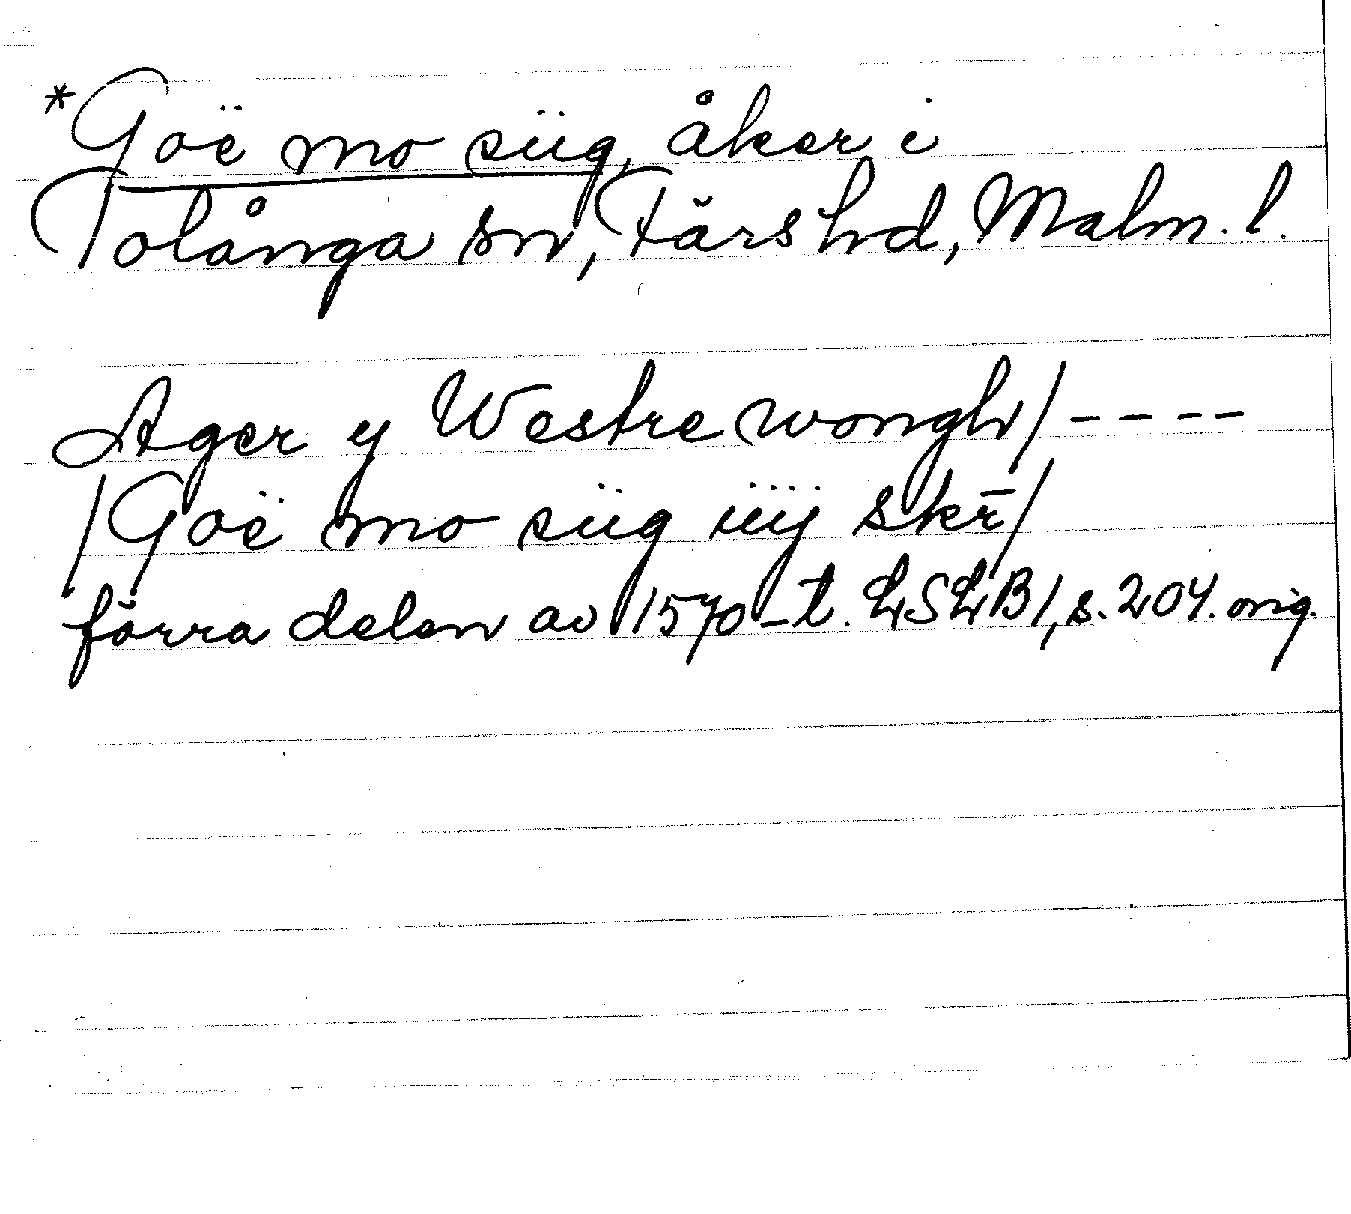 *Goë mo siig, åker i
Tolånga sn, Färs hd, Malm. l.
Ager y Westre wongh/ - - - -
/Goë mo siig iiij skr̄/
förra delen av 1570-t. LSLB1, s. 204. orig.